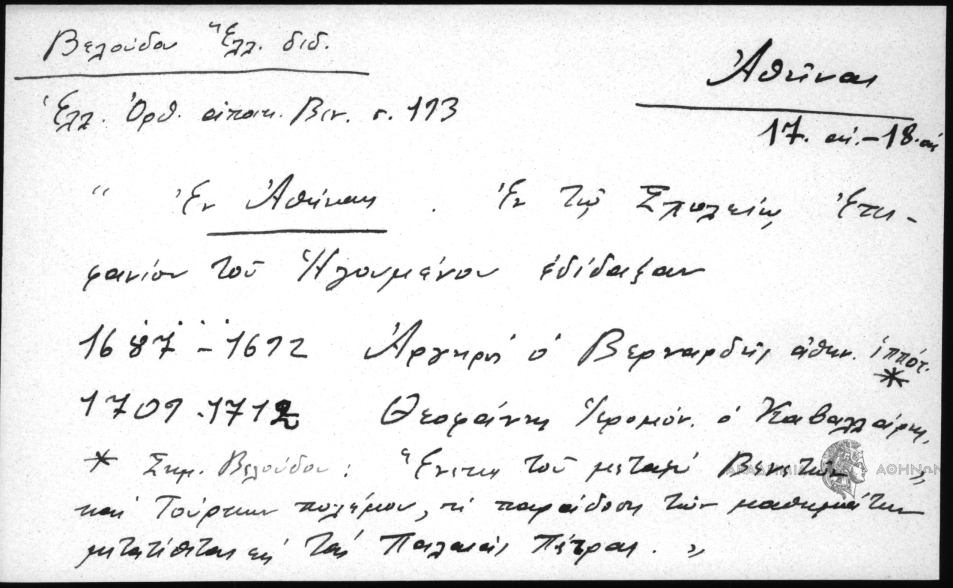 Βελούδου Ἑλλ. διδ.
Ἀθῆναι
Ἑλλ. Ὀρθ. ἀποικ. Βεν. σ. 173
17. αἰ. – 18. αἰ
“ Ἐν Ἀθήναις . Ἐν τῷ Σχολείῳ Ἐπι-
φανίου τοῦ Ἡγουμένου ἐδίδαξαν
1687 – 1692 Ἀργυρὸς ὁ Βερναρδῆς ἀθην. ἱππότ. *
1709 - 1712 Θεοφάνης Ἱερομόν. ὁ Καβαλλάρης.
* Σημ. Βελούδου : Ἕνεκα τοῦ μεταξὺ Βενετῶν
καὶ Τούρκων πολέμου, ἡ παράδοση τῶν μαθημάτων
μετατίθεται εἰς τὰς Παλαιὰς Πάτρας . „
ΑΚΑΔΗΜΙΑ ΑΘΗΝΩΝ